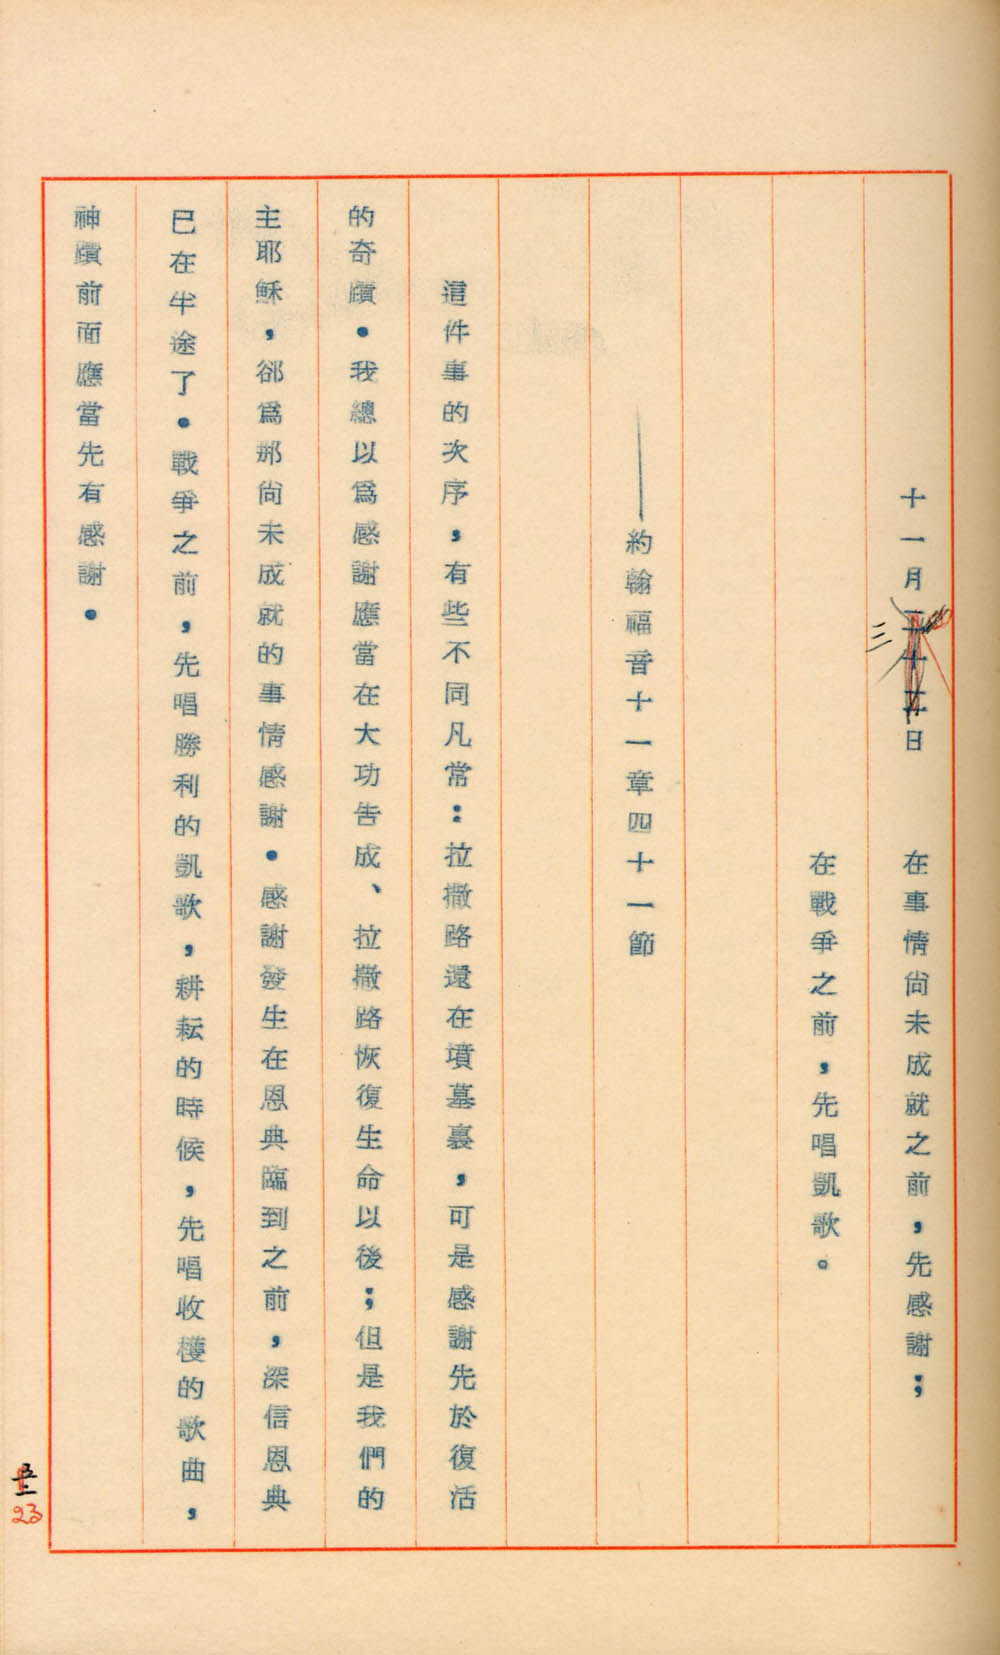 十一月三日　在事情尚未成就之前，先感謝；
在戰爭之前，先唱凱歌。
——約翰福音十一章四十一節
這件事的次序，有些不同凡常：拉撒路還在墳墓裏，可是感謝先於復活
的奇蹟．我總以爲感謝應當在大功告成、拉撒路恢復生命以後；但是我們的
主耶穌，郤爲那尚未成就的事情感謝．感謝發生在恩典臨到之前，深信恩典
已在半途了．戰爭之前，先唱勝利的凱歌，耕耘的時候，先唱收穫的歌曲，
神蹟前面應當先有感謝．
23